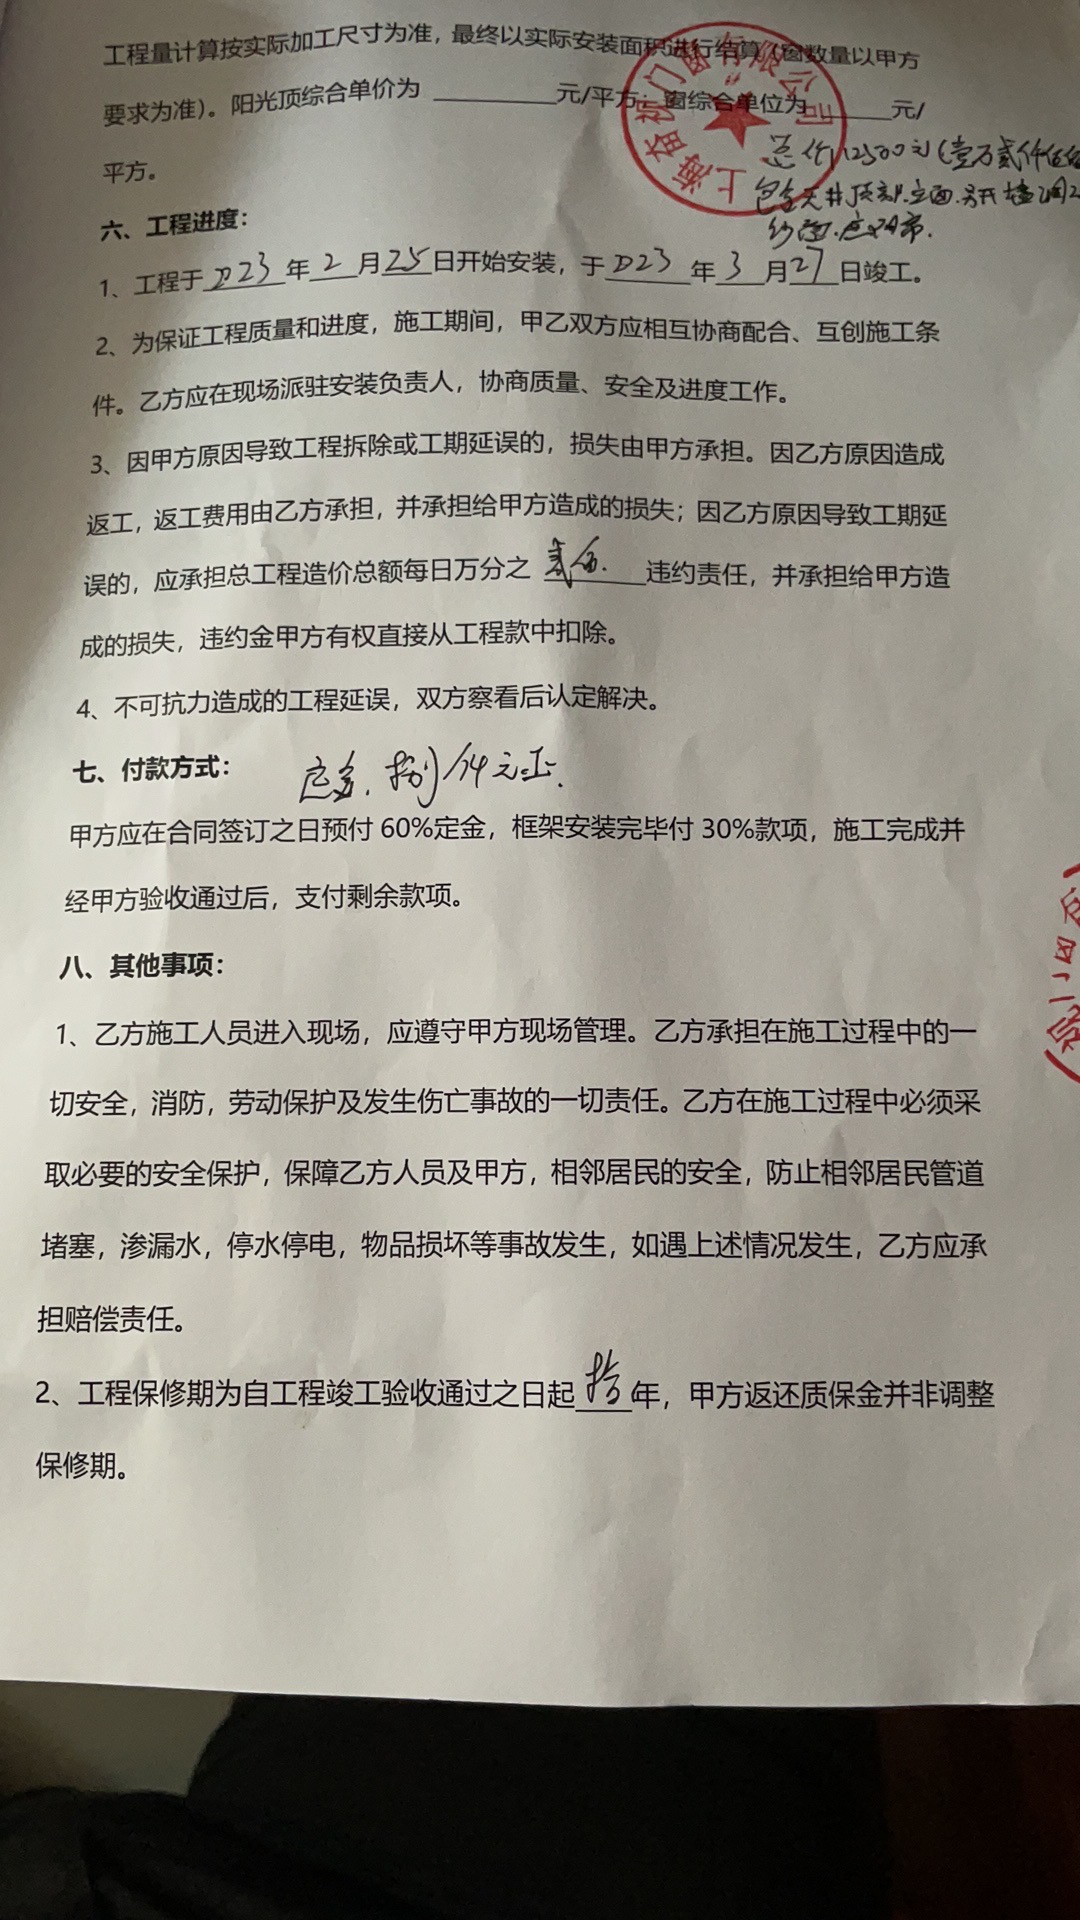 工程量计算按实际加工尺寸为准，最终以实际安装面积进行结算（窗数量以甲方
要求为准）。阳光顶综合单价为________元/平方；窗综合单位为______元/
平方。
总价12500元(壹万贰仟伍佰
包含天井顶部.立面.另开墙洞
纱窗.
上海奋 门窗有限公司
六、工程进度：
1、工程于2023年2月25日开始安装，于2023年3月27日竣工。
2、为保证工程质量和进度，施工期间，甲乙双方应相互协商配合、互创施工条
件。乙方应在现场派驻安装负责人，协商质量、安全及进度工作。
3、因甲方原因导致工程拆除或工期延误的，损失由甲方承担。因乙方原因造成
返工，返工费用由乙方承担，并承担给甲方造成的损失；因乙方原因导致工期延
误的，应承担总工程造价总额每日万分之 贰佰. 违约责任，并承担给甲方造
成的损失，违约金甲方有权直接从工程款中扣除。
4、不可抗力造成的工程延误，双方察看后认定解决。
七、付款方式：
捌仟元正.
甲方应在合同签订之日预付60%定金，框架安装完毕付30%款项，施工完成并
经甲方验收通过后，支付剩余款项。
八、其他事项：
1、乙方施工人员进入现场，应遵守甲方现场管理。乙方承担在施工过程中的一
切安全，消防，劳动保护及发生伤亡事故的一切责任。乙方在施工过程中必须采
取必要的安全保护，保障乙方人员及甲方，相邻居民的安全，防止相邻居民管道
堵塞，渗漏水，停水停电，物品损坏等事故发生，如遇上述情况发生，乙方应承
担赔偿责任。
2、工程保修期为自工程竣工验收通过之日起拾年，甲方返还质保金并非调整
保修期。